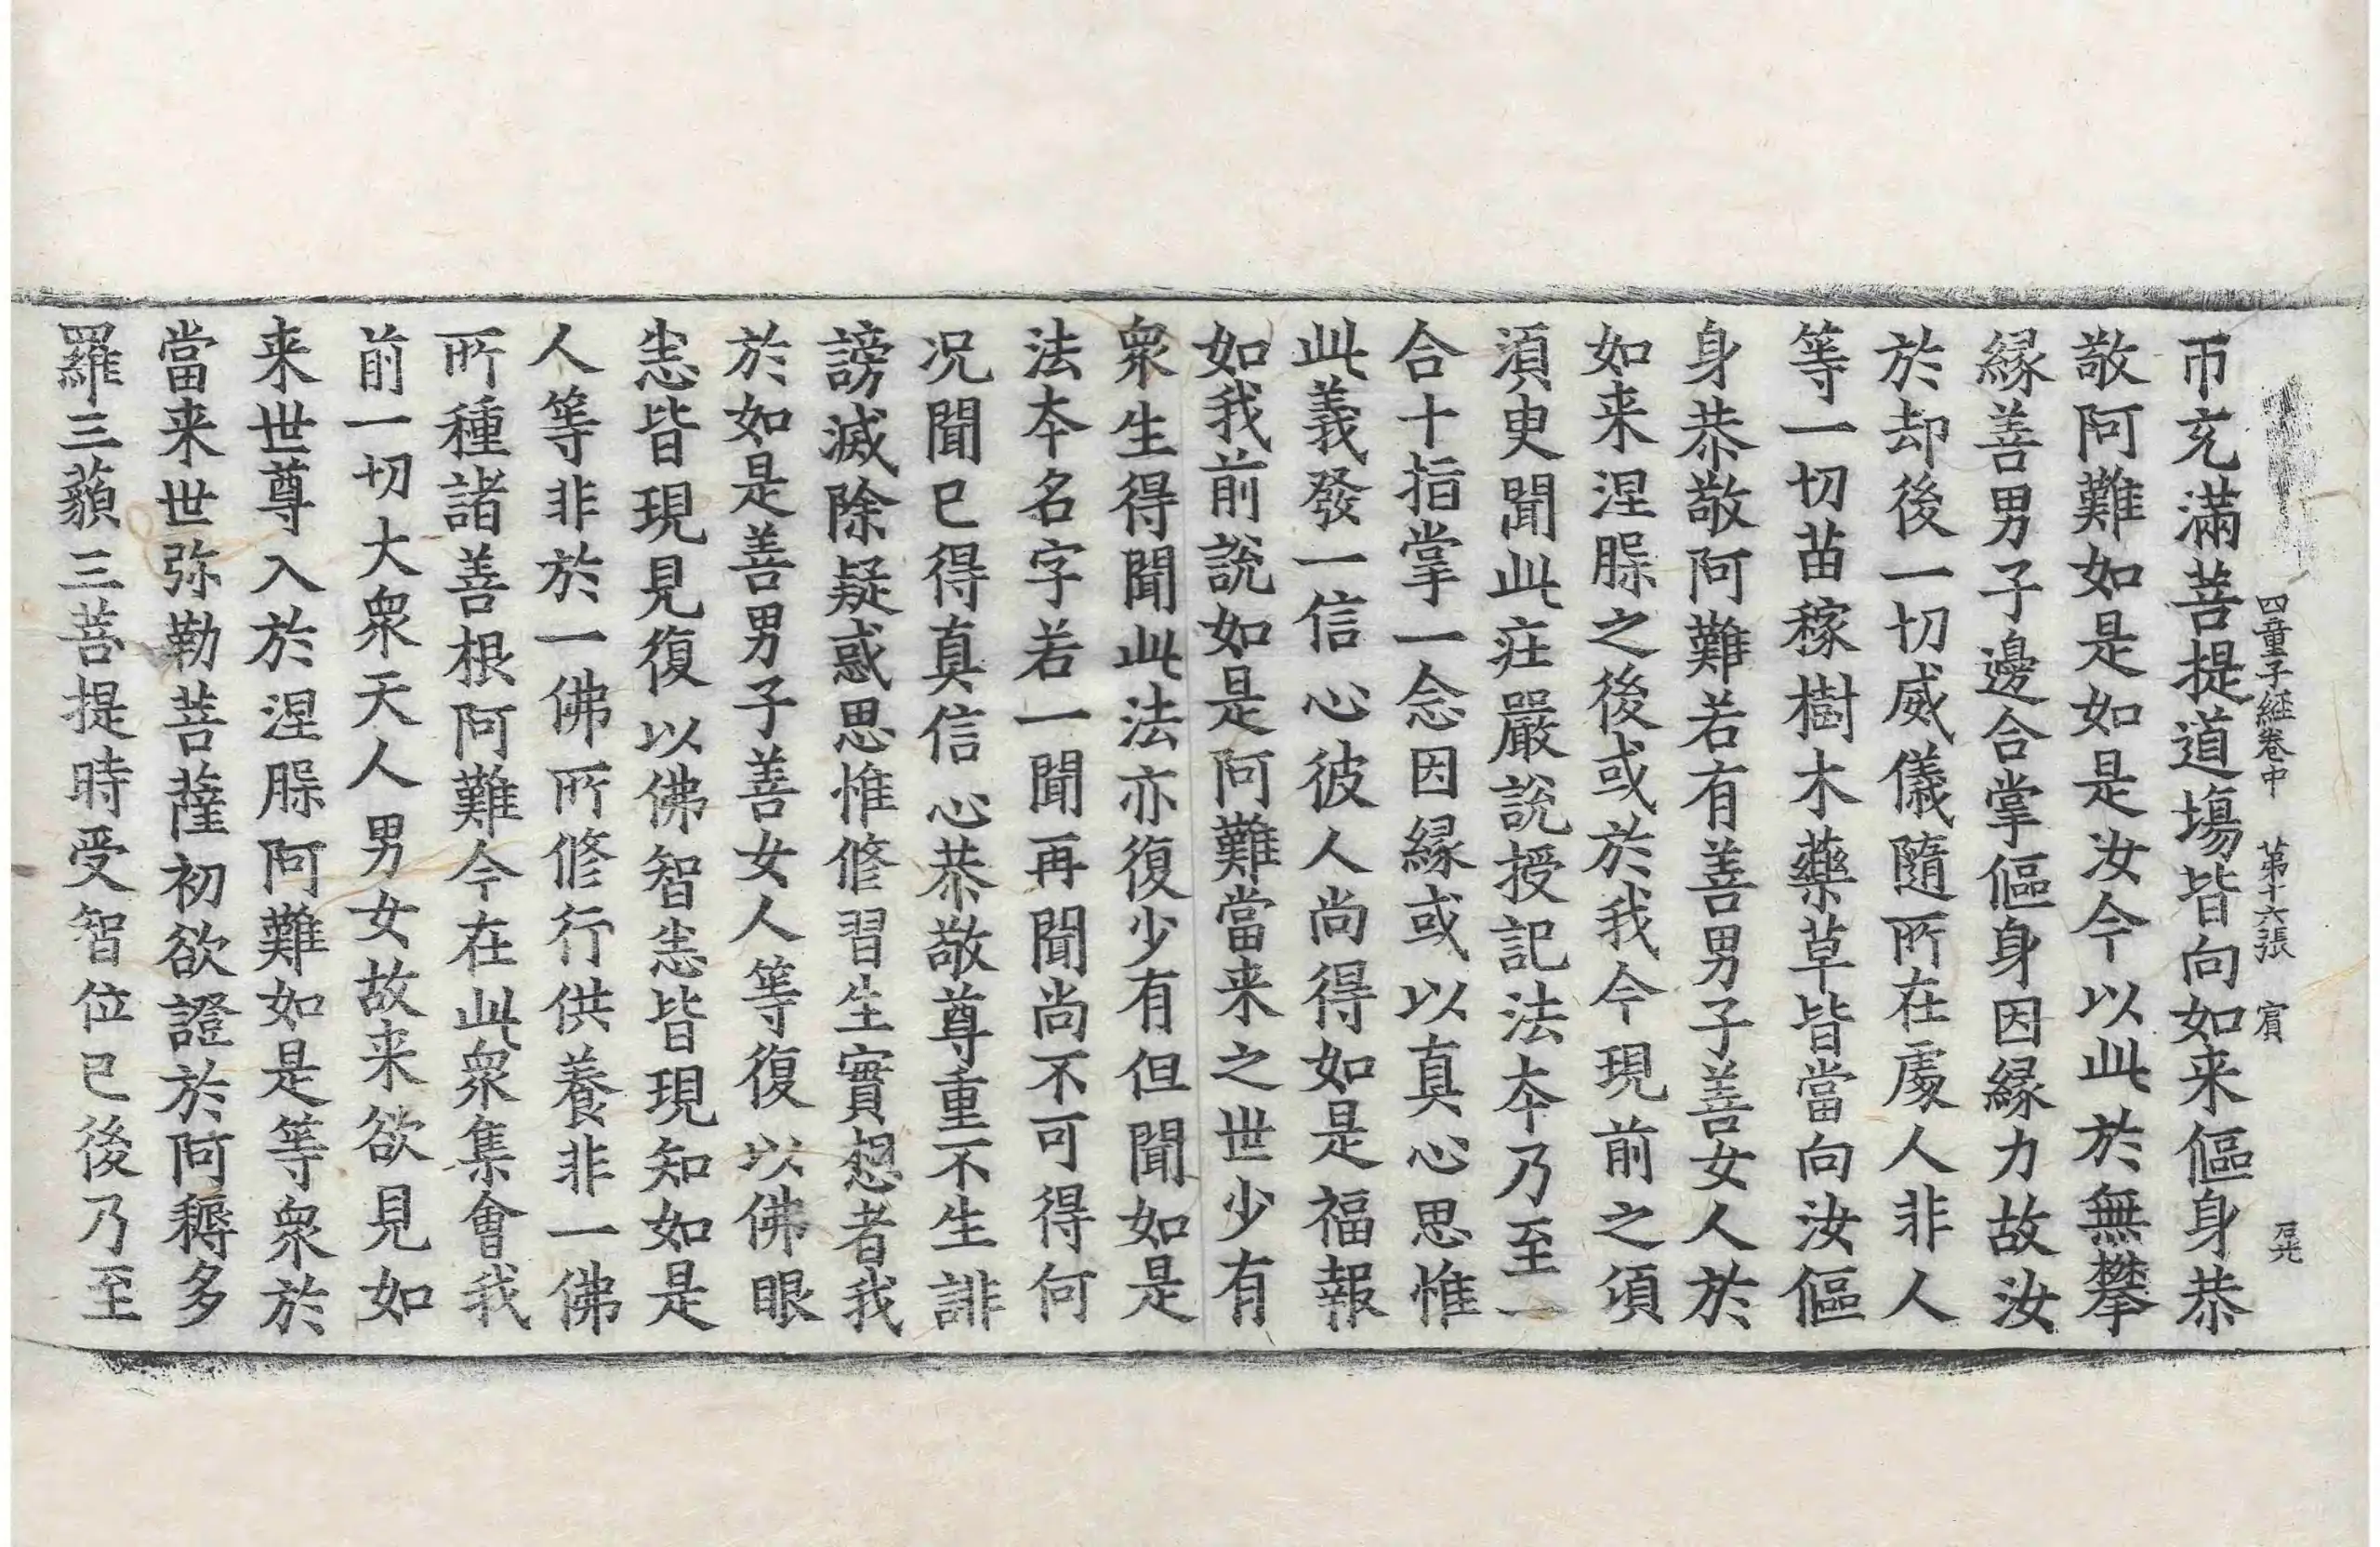 四童子經卷中 第十六張 賔
帀充滿菩提道場皆向如来傴身恭
敬阿難如是如是汝今以此於無攀
緣善男子邊合掌傴身因緣力故汝
於却後一切威儀隨所在處人非人
等一切苗稼樹木藥草皆當向汝傴
身恭敬阿難若有善男子善女人於
如来涅槃之後或於我今現前之須
須臾聞此莊嚴說授記法本乃至一
合十指掌一念因緣或以真心思惟
此義發一信心彼人尚得如是福報
如我前說如是阿難當来之世少有
衆生得聞此法亦復少有但聞如是
法本名字若一聞再聞尚不可得何
况聞已得真信心恭敬尊重不生誹
謗滅除疑惑思惟修習生實想者我
於如是善男子善女人等復以佛眼
悉皆現見復以佛智悉皆現知如是
人等非於一佛所修行供養非一佛
所種諸善根阿難今在此衆集會我
前一切大衆天人男女故来欲見如
来世尊入於涅槃阿難如是等衆於
當来世弥勒菩薩初欲證於阿耨多
羅三藐三菩提時受智位已後乃至